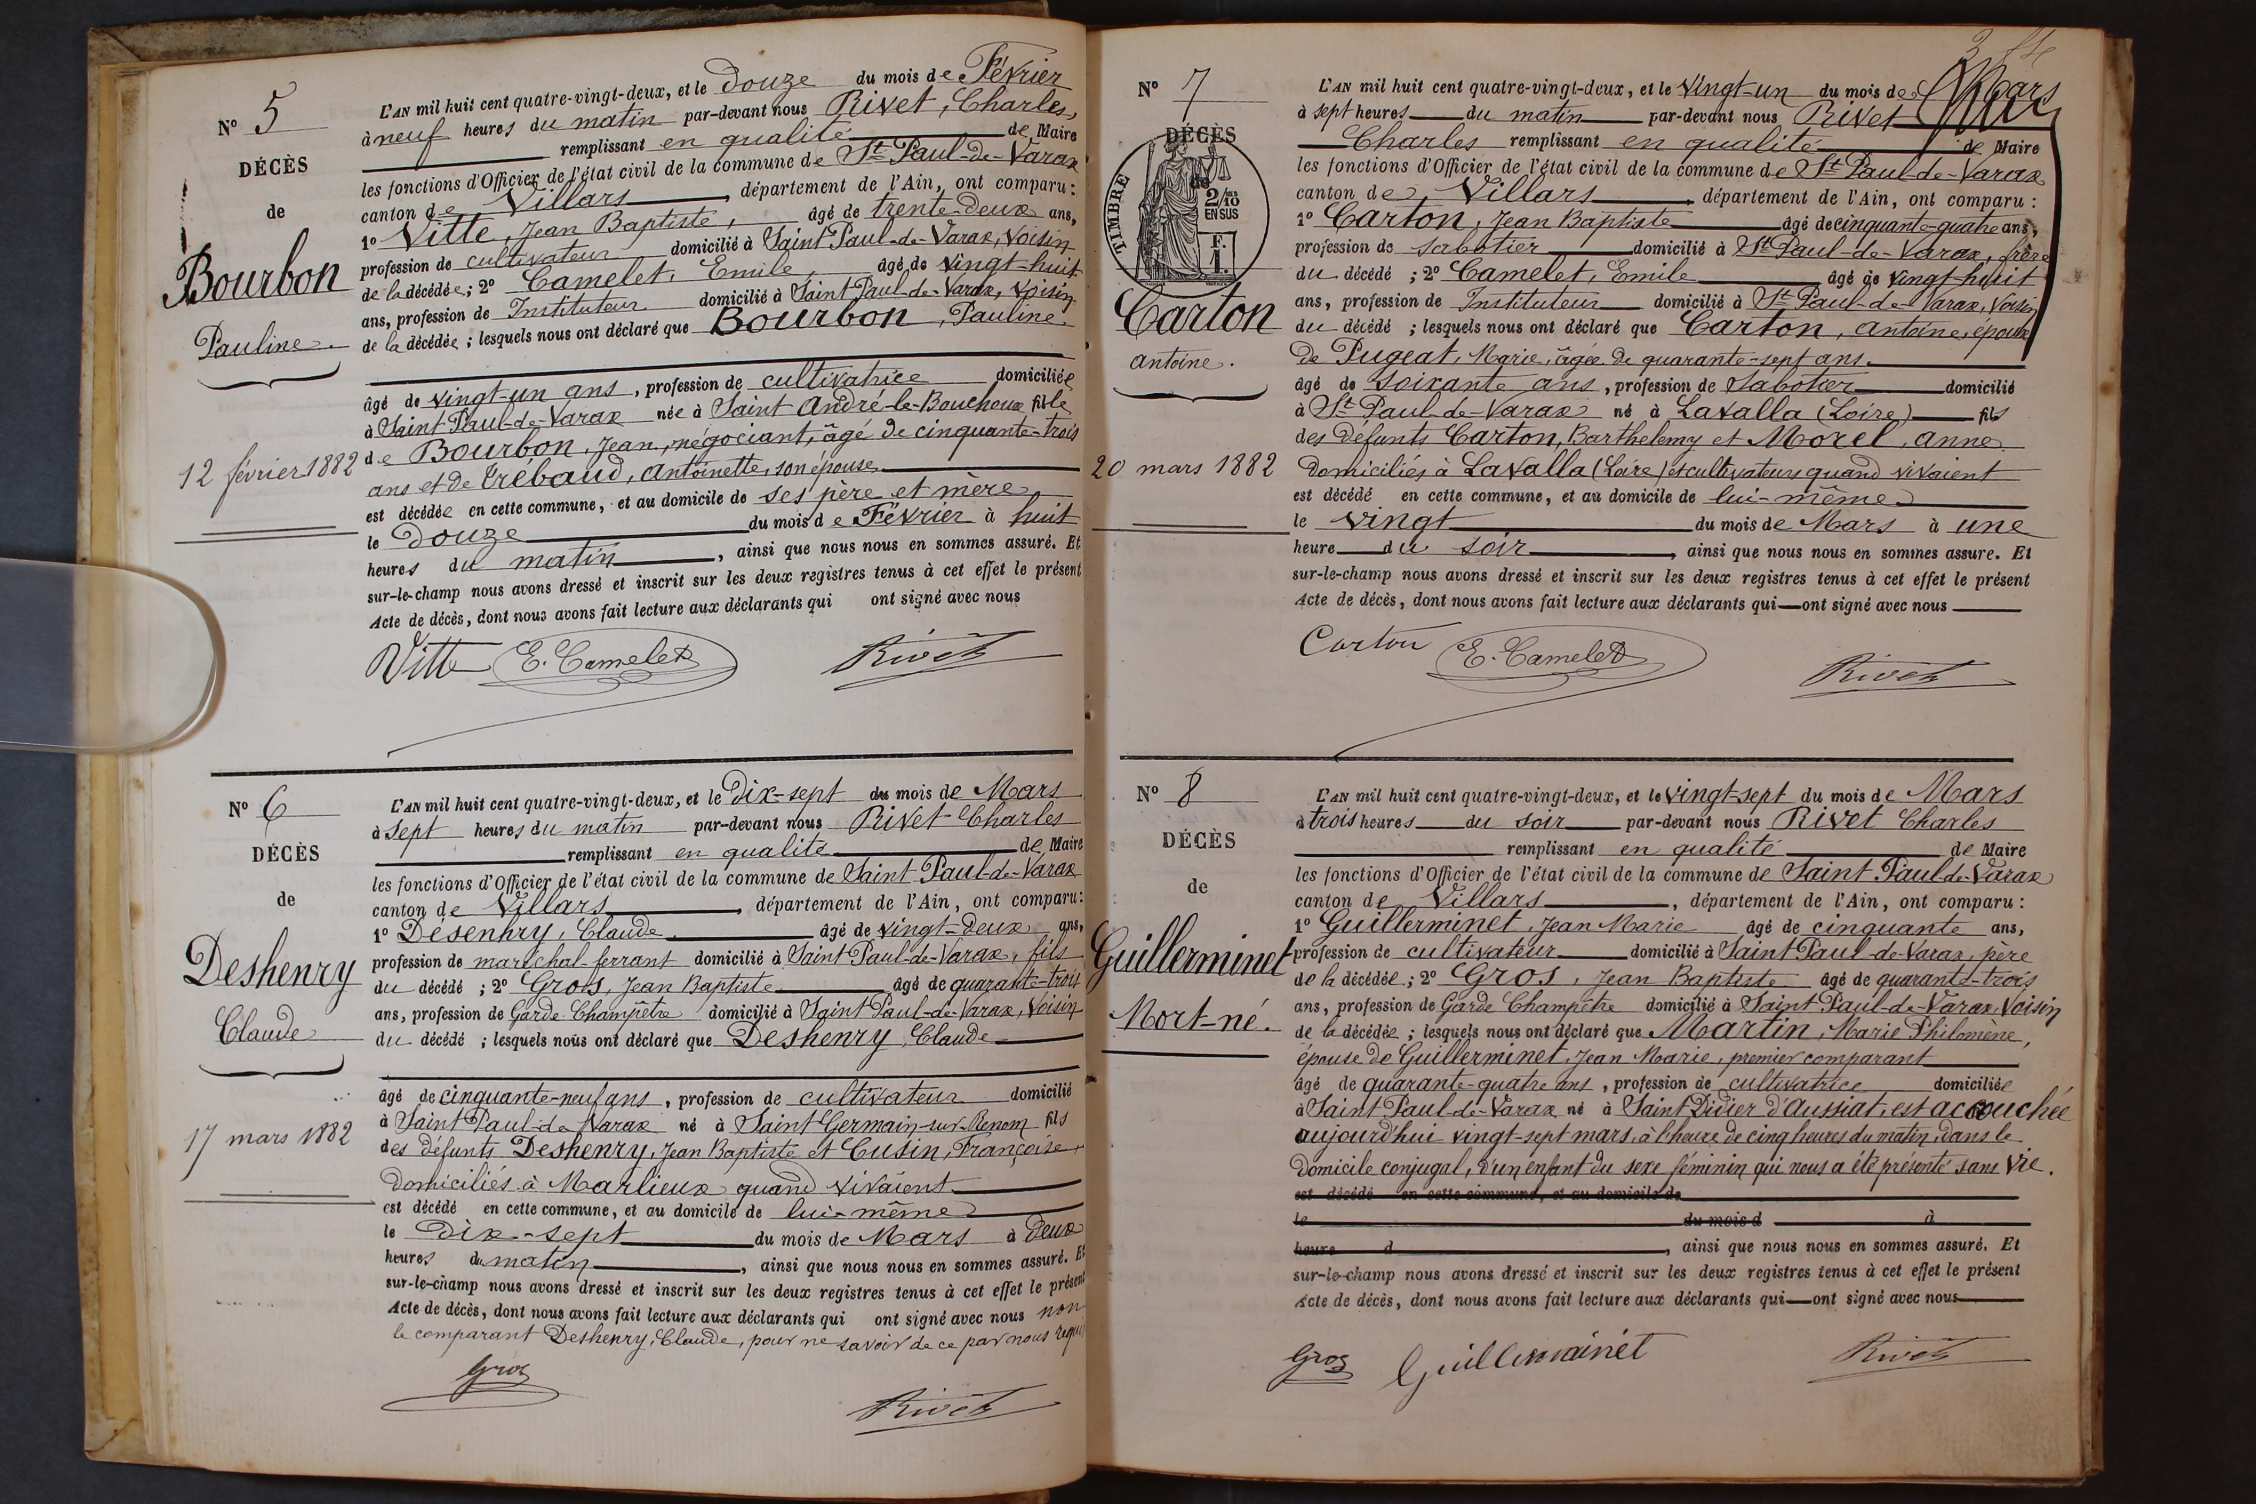 N° 5
DÉCÈS
de
Bourbon
Pauline.
12 février 1882
L'AN mil huit cent quatre-vingt-deux, et le douze du mois de Février
à neuf heures du matin par-devant nous Rivet, Charles,
remplissant en qualité de Maire
les fonctions d'Officier de l'état civil de la commune de St Paul-de-Varax
canton de Villars, département de l'Ain, ont comparu :
1° Vitte, Jean Baptiste, âgé de trente-deux ans,
profession de cultivateur domicilié à Saint Paul-de-Varax, voisin
de la décédée ; 2° Camelet, Emile, âgé de vingt-huit
ans, profession de Instituteur domicilié à Saint Paul-de-Varax, voisin
de la décédée ; lesquels nous ont déclaré que Bourbon, Pauline
âgé de vingt-un ans, profession de cultivatrice domiciliée
à Saint Paul-de-Varax née à Saint André-le-Bouchoux fille
de Bourbon, Jean, négociant, âgé de cinquante-trois
ans et de Trébaud, Antoinette, son épouse
est décédée en cette commune, et au domicile de ses père et mère
le douze du mois de Février à huit
heures du matin, ainsi que nous nous en sommes assuré. Et
sur-le-champ nous avons dressé et inscrit sur les deux registres tenus à cet effet le présent
Acte de décès, dont nous avons fait lecture aux déclarants qui ont signé avec nous
Vitte E. Camelet Rivet
N° 6
DÉCÈS
de
Deshenry
Claude
17 mars 1882
L'AN mil huit cent quatre-vingt-deux, et le Dix-sept du mois de Mars
à sept heures du matin par-devant nous Rivet Charles
remplissant en qualité de Maire
les fonctions d'Officier de l'état civil de la commune de Saint Paul-de-Varax
canton de Villars, département de l'Ain, ont comparu :
1° Desenhry, Claude, âgé de vingt-deux ans,
profession de maréchal-ferrant domicilié à Saint Paul-de-Varax, fils
du décédé ; 2° Gros, Jean Baptiste âgé de quarante-trois
ans, profession de Garde-Champêtre domicilié à Saint Paul-de-Varax, Voisin
du décédé ; lesquels nous ont déclaré que Deshenry, Claude
âgé de cinquante-neuf ans, profession de cultivateur domicilié
à Saint Paul-de Varax né à Saint Germain-sur-Renom fils
des défunts Deshenry, Jean Baptiste et Cusin, Françoise,
domiciliés à Marlieux quand vivaient
est décédé en cette commune, et au domicile de lui-même
le dix-sept du mois de Mars à deux
heures du matin, ainsi que nous nous en sommes assuré. Et
sur-le-champ nous avons dressé et inscrit sur les deux registres tenus à cet effet le présent
Acte de décès, dont nous avons fait lecture aux déclarants qui ont signé avec nous non
le comparant Deshenry, Claude, pour ne savoir de ce par nous requis
Gros
Rivet
N° 7
DÉCÈS
de
TIMBRE
2/10
EN SUS
F.
1.
Carton
Antoine.
20 mars 1882
L'AN mil huit cent quatre-vingt-deux, et le vingt-un du mois de Mars
à sept heures du matin par-devant nous Rivet
Charles remplissant en qualité de Maire
les fonctions d'Officier de l'état civil de la commune de St Paul-de-Varax
canton de Villars, département de l'Ain, ont comparu :
1° Carton, Jean Baptiste âgé de cinquante-quatre ans,
profession de sabotier domicilié à St Paul-de-Varax, frère
du décédé ; 2° Camelet, Emile âgé de vingt-huit
ans, profession de Instituteur domicilié à St Paul-de-Varax, voisin
du décédé ; lesquels nous ont déclaré que Carton, Antoine, époux
de Pugeat, Marie, âgée de quarante-sept ans.
âgé de soixante ans, profession de Sabotier domicilié
à St Paul-de-Varax né à Lavalla (Loire) fils
des défunts Carton, Barthelemy et Morel, Anne
domiciliés à Lavalla (Loire) et cultivateurs quand vivaient
est décédé en cette commune, et au domicile de lui-même
le vingt du mois de Mars à une
heure du soir, ainsi que nous nous en sommes assuré. Et
sur-le-champ nous avons dressé et inscrit sur les deux registres tenus à cet effet le présent
Acte de décès, dont nous avons fait lecture aux déclarants qui ont signé avec nous
Carton E. Camelet Rivet
N° 8
DÉCÈS
de
Guillerminet
Mort-né.
L'AN mil huit cent quatre-vingt-deux, et le vingt-sept du mois de Mars
à trois heures du soir par-devant nous Rivet Charles
remplissant en qualité de Maire
les fonctions d'Officier de l'état civil de la commune de Saint Paul de-Varax
canton de Villars, département de l'Ain, ont comparu :
1° Guillerminet, Jean Marie âgé de cinquante ans,
profession de cultivateur domicilié à Saint Paul-de-Varax, père
de la décédée ; 2° Gros, Jean Baptiste âgé de quarante-trois
ans, profession de Garde Champêtre domicilié à Saint Paul-de-Varax, Voisin
de la décédée ; lesquels nous ont déclaré que Martin, Marie Philomène,
épouse de Guillerminet, Jean Marie, premier comparant
âgé de quarante-quatre ans, profession de cultivatrice domiciliée
à Saint Paul-de-Varax né à Saint Didier d'Aussiat, est accouchée
aujourd'hui vingt-sept mars, à l'heure de cinq heures du matin, dans le
domicile conjugal, d'un enfant du sexe féminin qui nous a été présenté sans vie.
est décédé en cette commune, et au domicile de
le du mois d à
heure d, ainsi que nous nous en sommes assuré. Et
sur-le-champ nous avons dressé et inscrit sur les deux registres tenus à cet effet le présent
Acte de décès, dont nous avons fait lecture aux déclarants qui ont signé avec nous
Gros Guillerminet Rivet